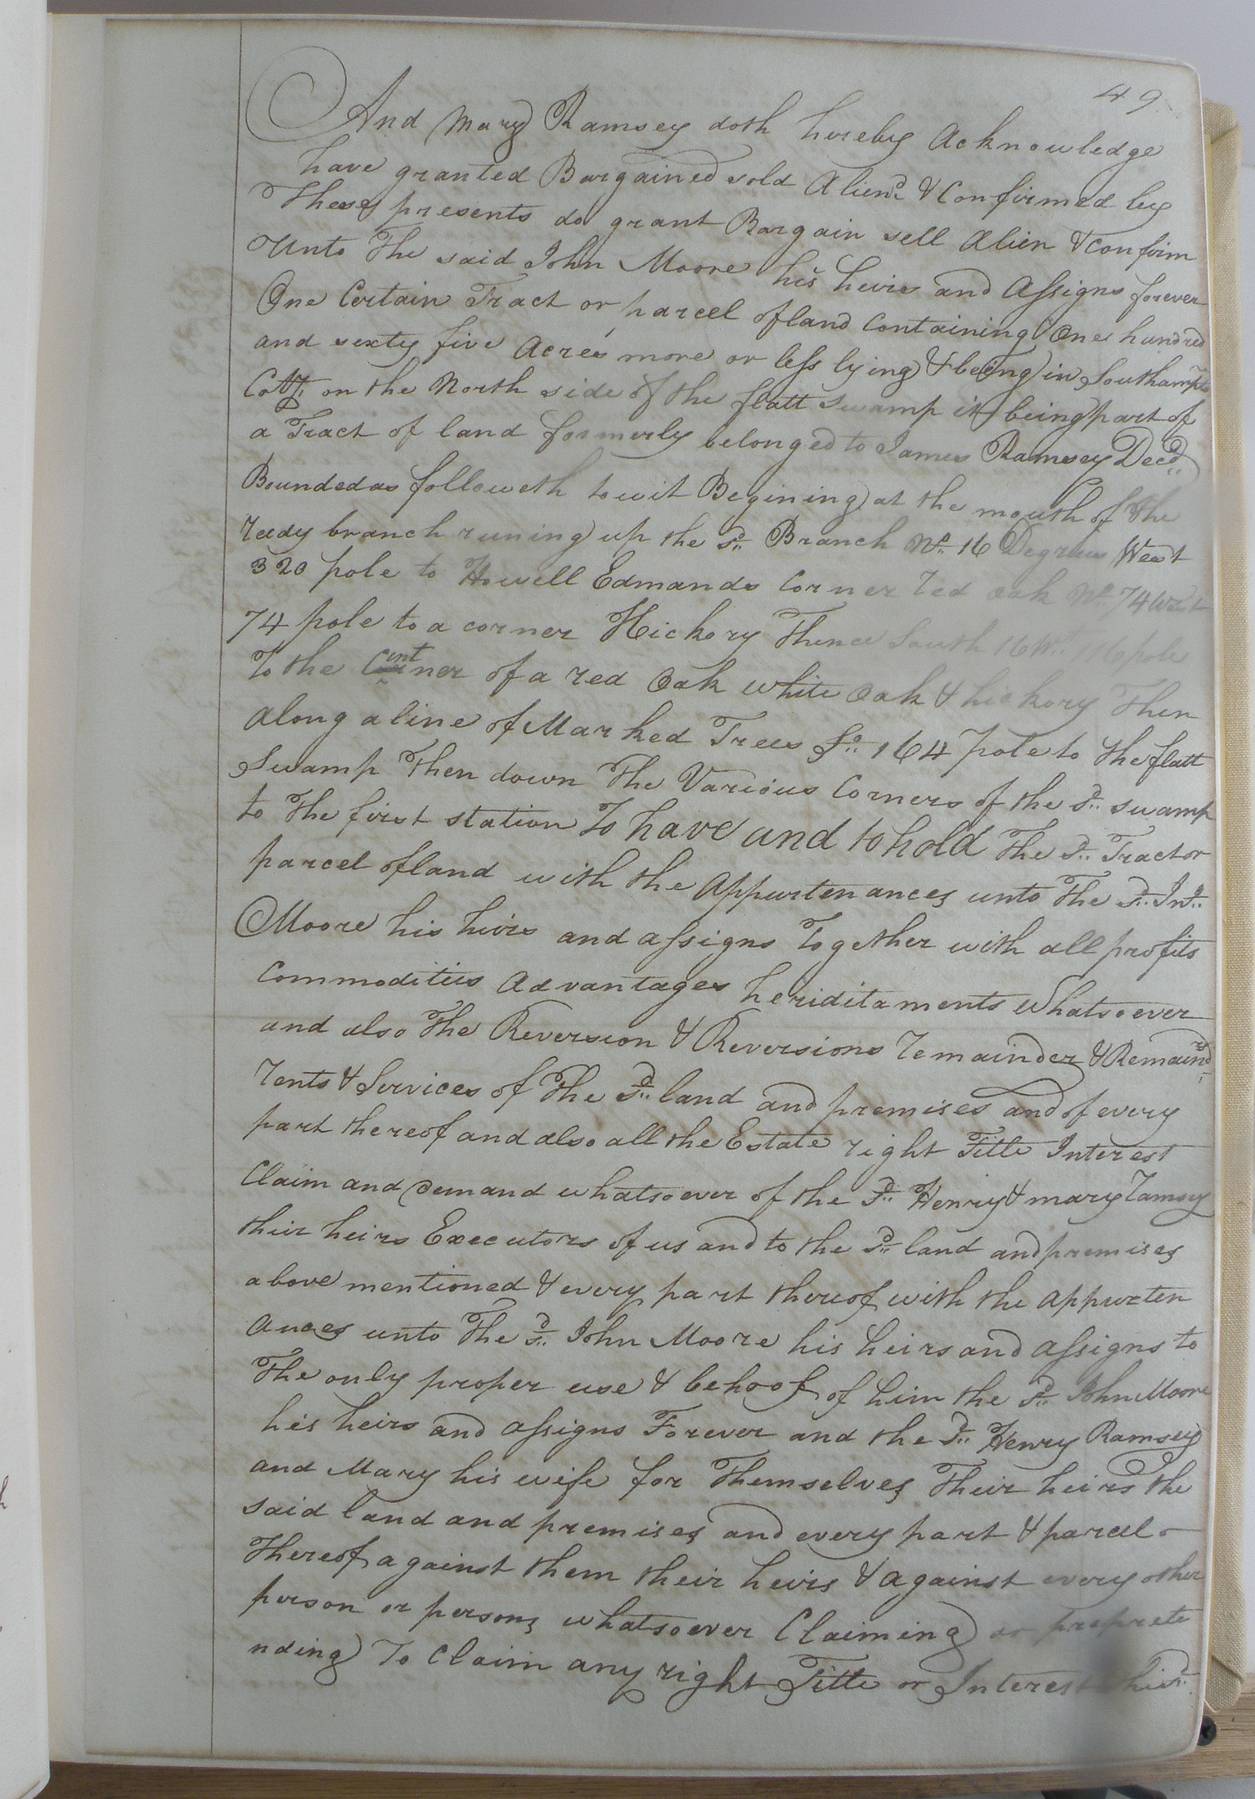 49
And Mary Ramsey doth hereby Acknowledge
have granted Bargained sold Aliend & Confirmed by
These presents do grant Bargain sell Alien & Confirm
Unto The said John Moore his heirs and Assigns forever
One Certain Tract or parcel of land Containing One hundred
and sexty five Acres more or less lying & being in Southampto
Coty. on the North side of the flatt swamp it being part of
a Tract of land formerly belonged to James Ramsey Decd.
Bounded as followeth towit Begining at the mouth of the
reedy branch runing up the sd. Branch No. 16 Degrees West
320 pole to Howell Edmands Corner red oak No. 74 Wt
74 pole to a corner Hickory Thence South 16 W. pole
To the Cunt ner of a red Oak white Oak & hickory Then
along a line of Marked Trees So. 164 pole to the flatt
Swamp Then down The Various Corners of the sd. swamp
to The first station To have and to hold The sd. Tract or
parcel of land with the Appurtenances unto The sd. Jno.
Moore his heirs and assigns Together with all profits
Commodities Advantages heriditaments Whatsoever
and also The Reversion & Reversions remainder & Remaind
rents & Services of The sd. land and premises and of every
part thereof and also all the Estate right Title Interest
Claim and Demand whatsoever of the sd. Henry & mary ramsey
their heirs Executors of us and to the sd. land and premises
above mentioned & every part thereof with the appurten
ances unto The sd. John Moore his heirs and assigns to
The only proper use & behoof of him the sd. John Moore
his heirs and assigns Forever and the sd. Henry Ramsey
and Mary his wife for Themselves Their heirs the
said land and premises and every part & parcel
Thereof against them their heirs & against every other
person or persons whatsoever Claiming or preprete
nding To Claim any right Title or Interest